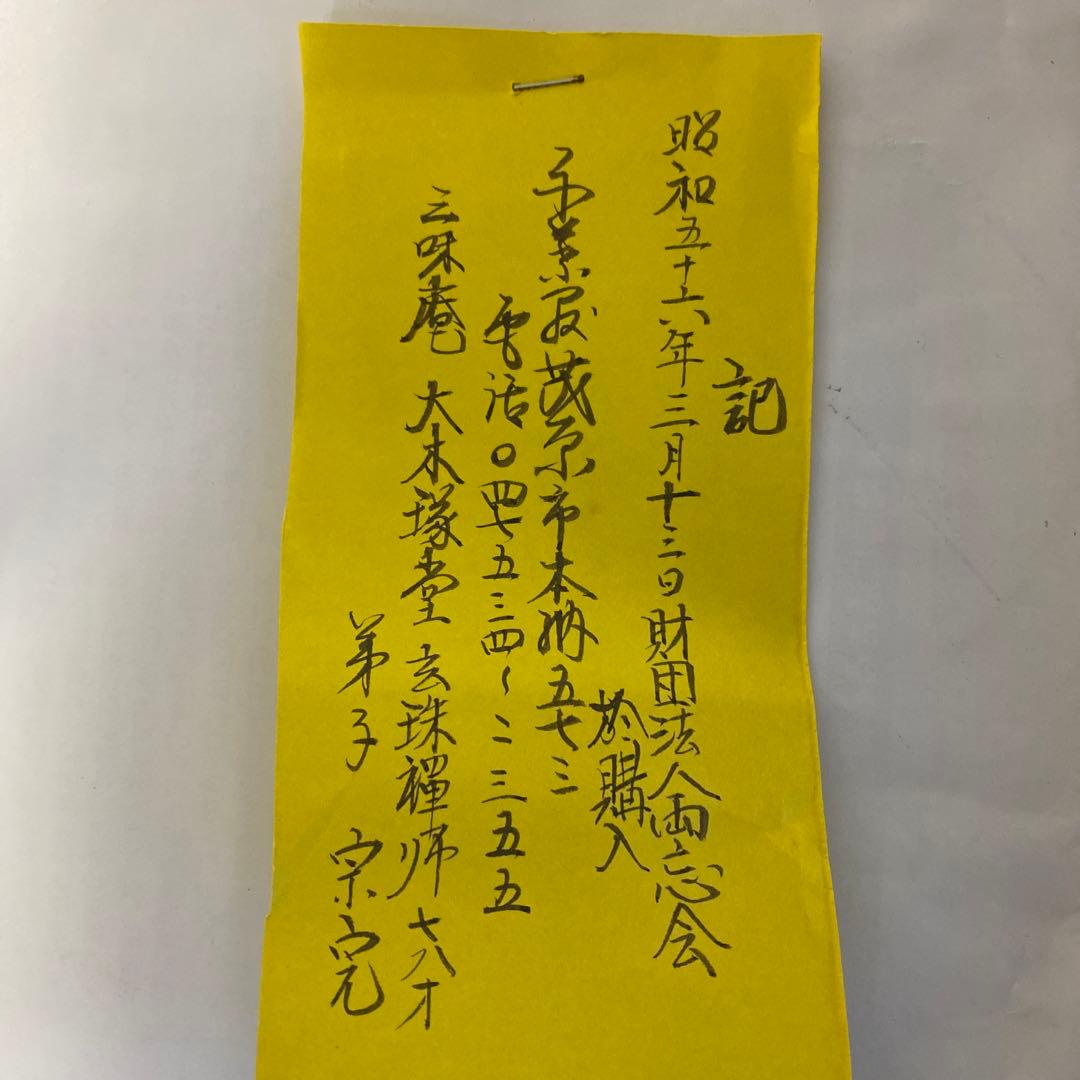 記
昭和五十六年三月十三日財団法人両忘会
於購入
千葉県茂原市本納五七三
電話〇四七五三四〜二三五五
三昧庵 大木琢堂 玄珠禪师 七八才
弟子 宗完